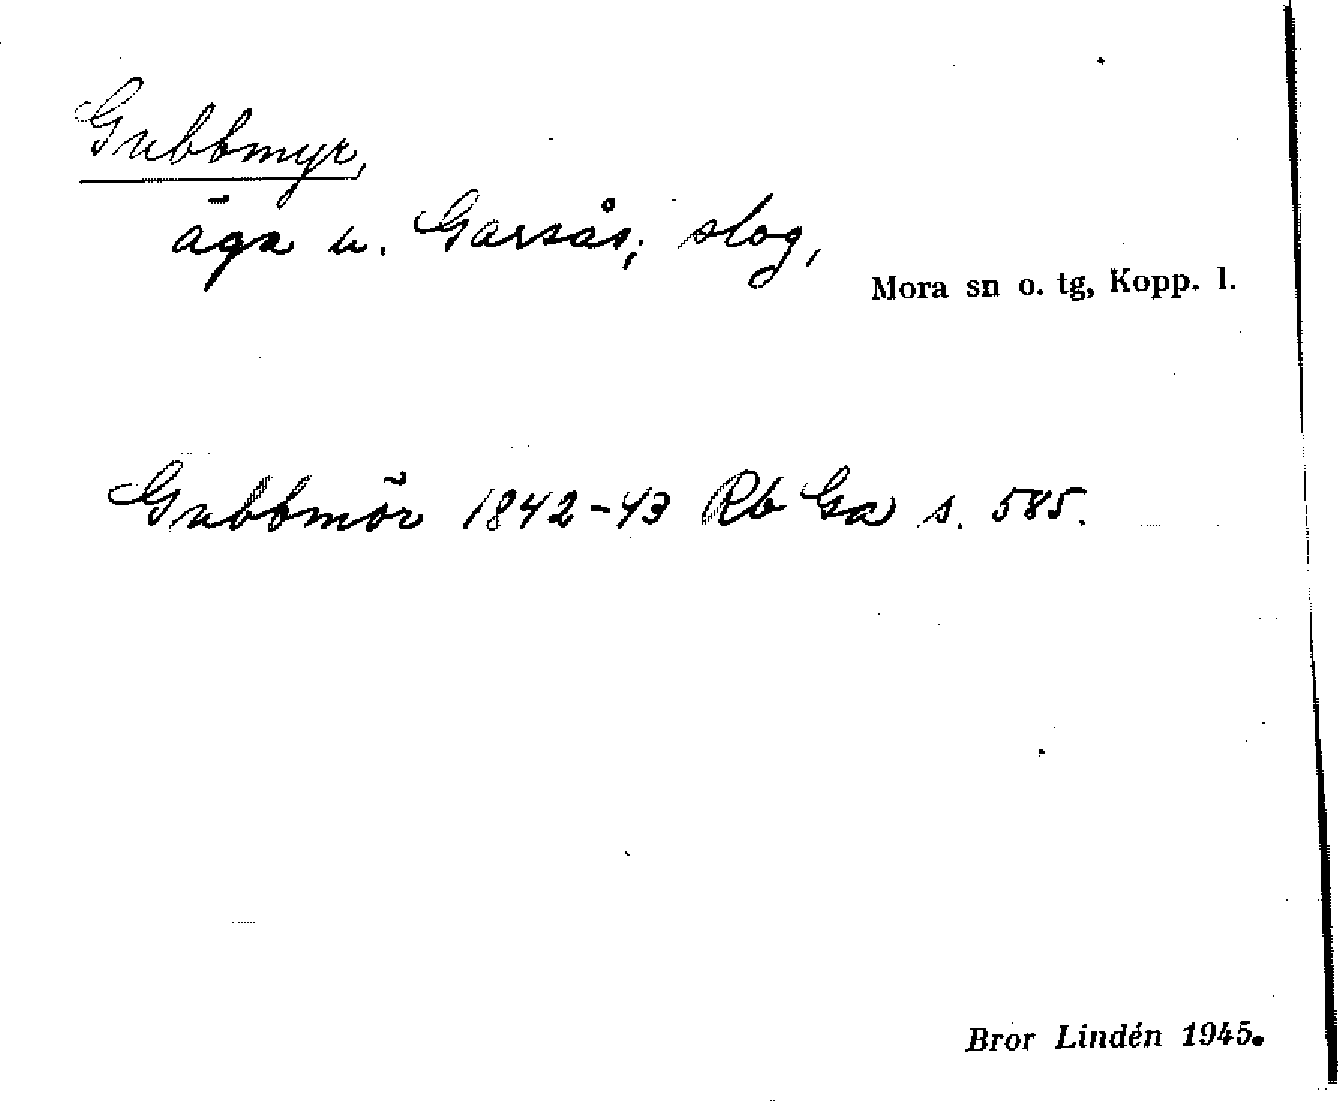 Gubbmyr,
äga u. Garsås; slog,
Mora sn o. tg, Kopp. l.
Gubbmör 1842-43 Rb Ga s. 585.
Bror Lindén 1945.